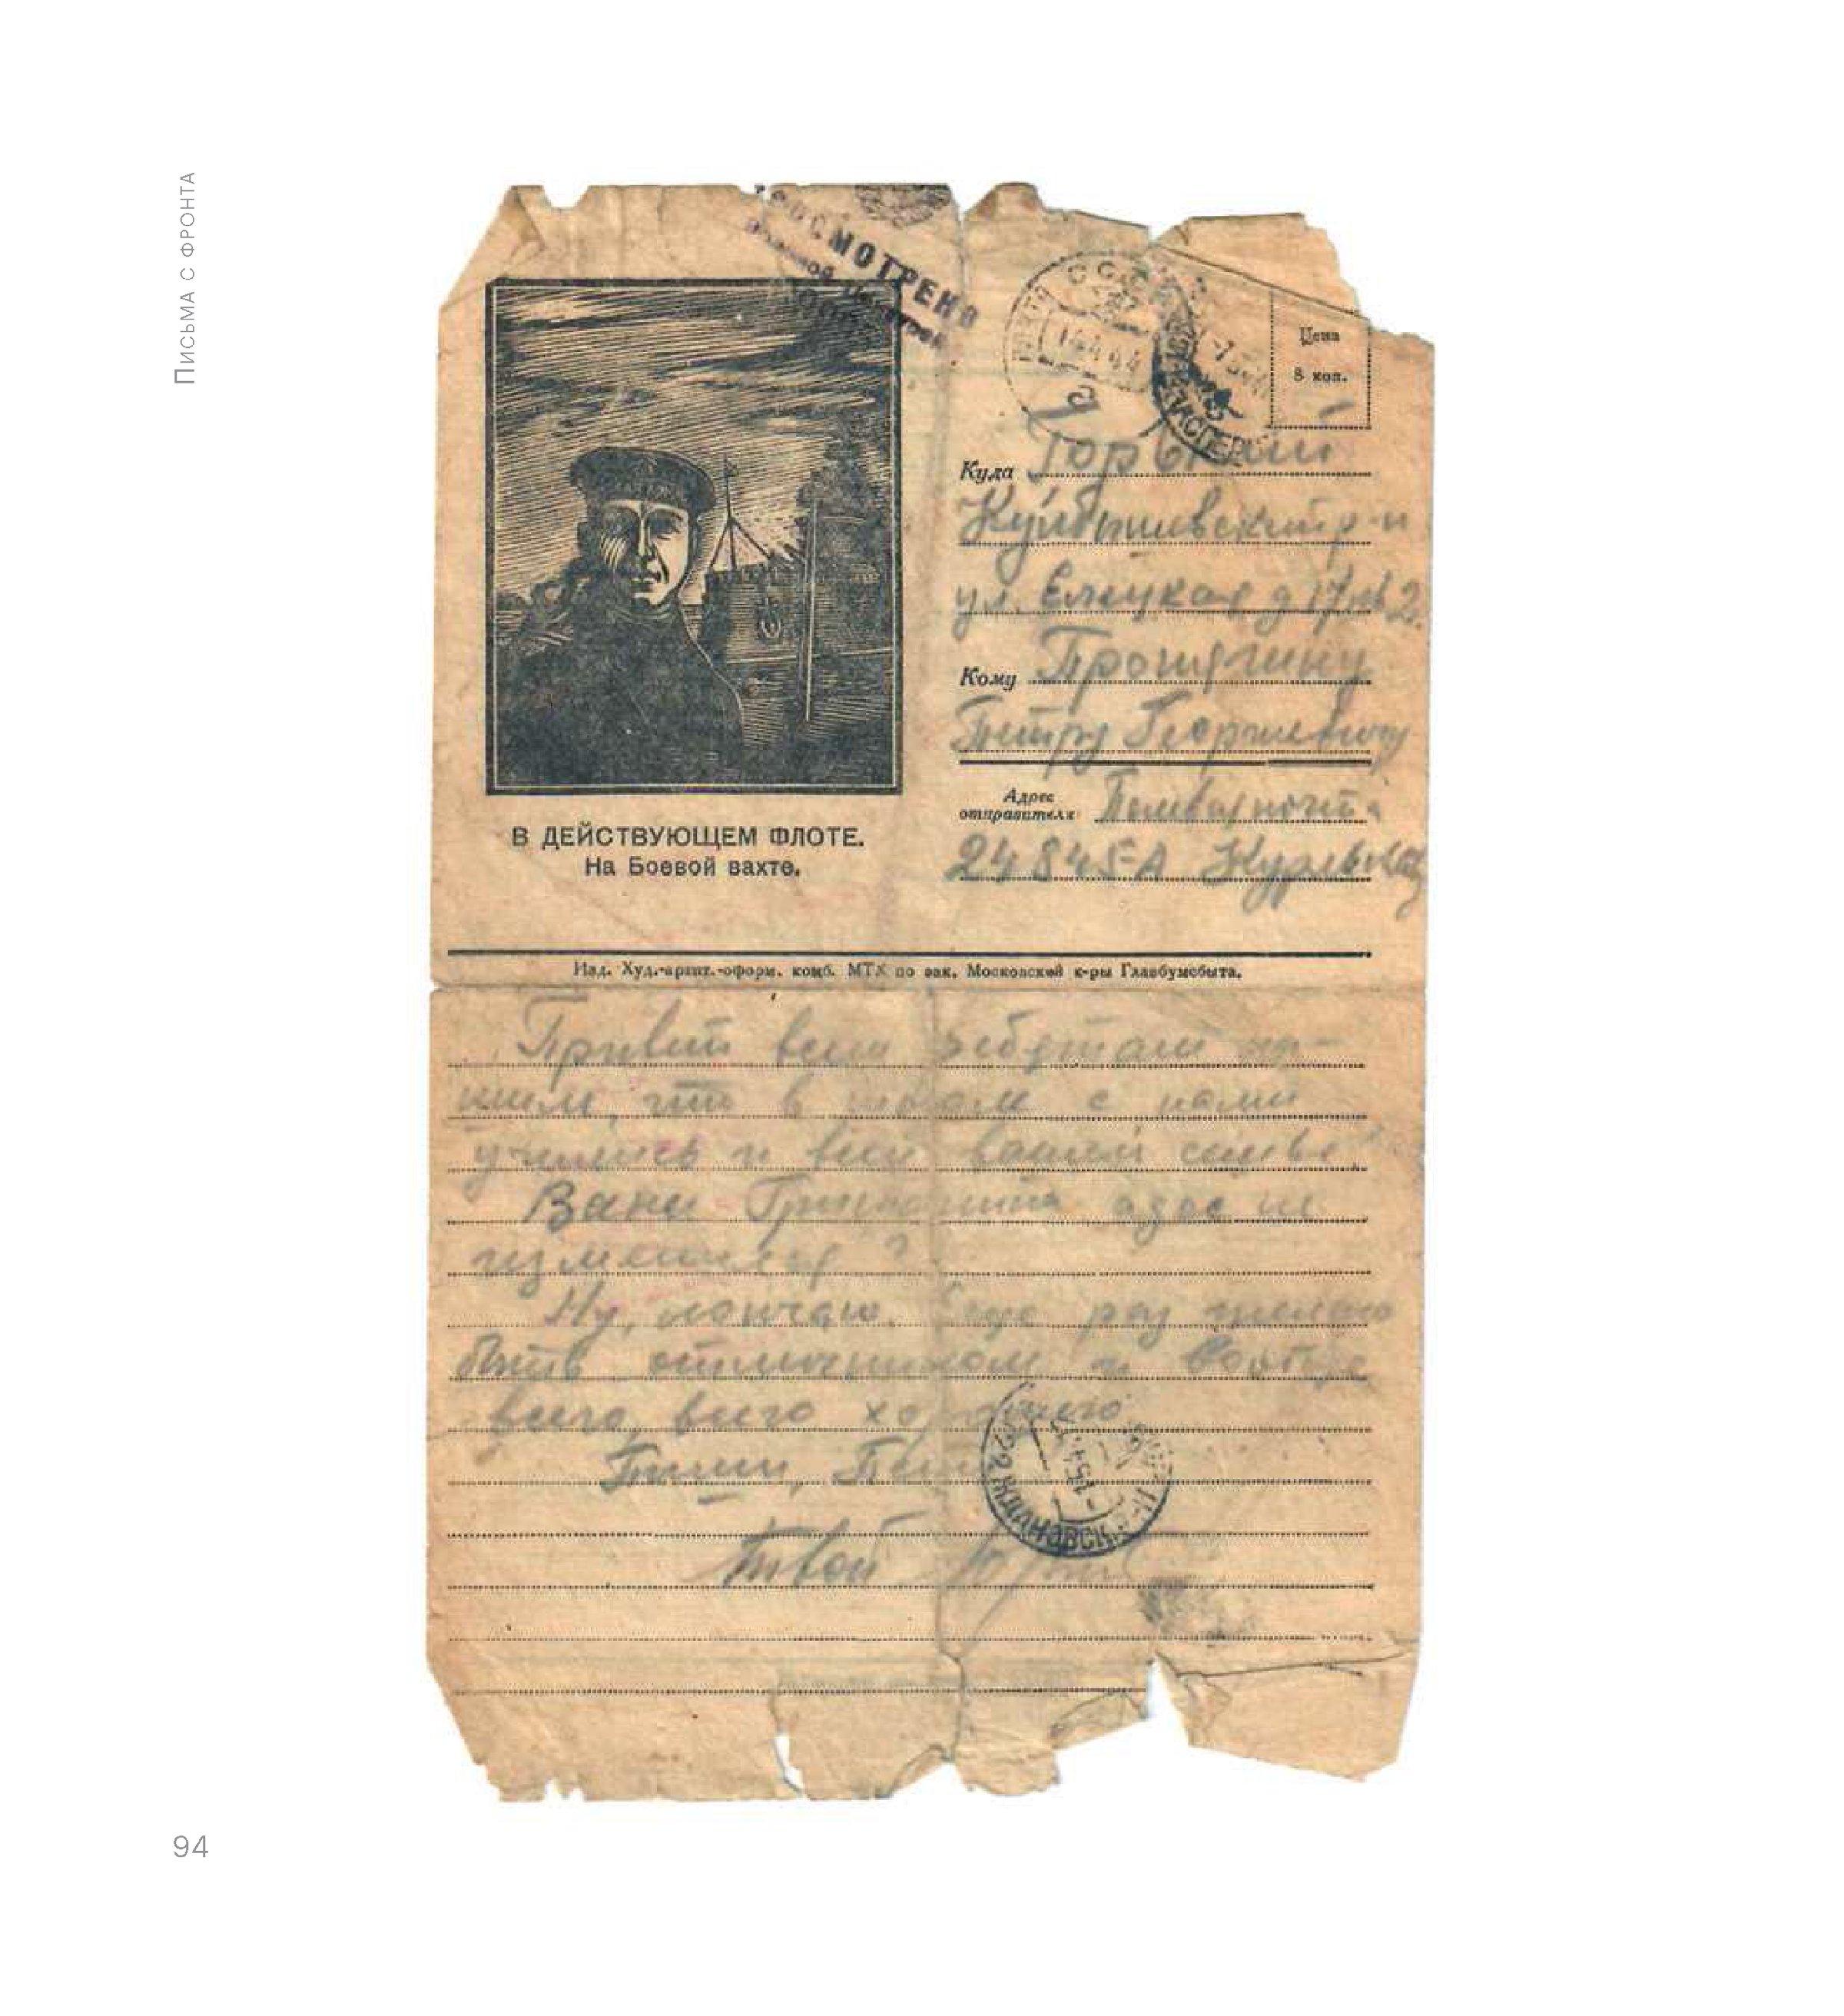 Письма с фронта
ПРОСМОТРЕНО
Военной Цензурой
СССР
14 4 44
Цена
8 коп.
Куда Горький
Куйбышевский р-н
ул. Елецкая д 17 кв 2.
Кому
Петру Георгиевичу
Адрес
отправителя Полев. почта
24845-А
В ДЕЙСТВУЮЩЕМ ФЛОТЕ.
На Боевой вахте.
Изд. Худ.-архит.-оформ. комб. МТХ по зак. Московской к-ры Главбумсбыта.
Привет всем ребятам на-
шим, что в с нами
учились и всей вашей семье.
Вани адрес не
изменился?
Ну, кончаю. Еще раз желаю
быть отличником и вообще
всего, всего хорошего
Пиши, Петя
Твой
94